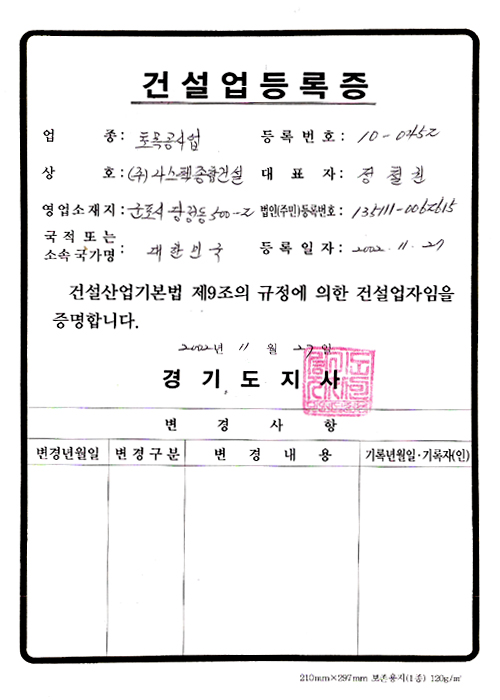 건설업등록증
업 종: 토목공사업 등록번호: 10-0452
상 호: (주)사스펙종합건설 대 표 자: 정
영업소재지: 군포시 당정동 500-2 법인(주민)등록번호: 135111-0062615
국적 또는
소속국가명: 대한민국 등록일자: 2002. 11. 27
건설산업기본법 제9조의 규정에 의한 건설업자임을
증명합니다.
2002년 11 월 27일
경기도지사
변 경 사 항
변경년월일 변경구분 변 경 내 용 기록년월일·기록자(인)
210mm×297mm 보존용지(1종) 120g/㎡